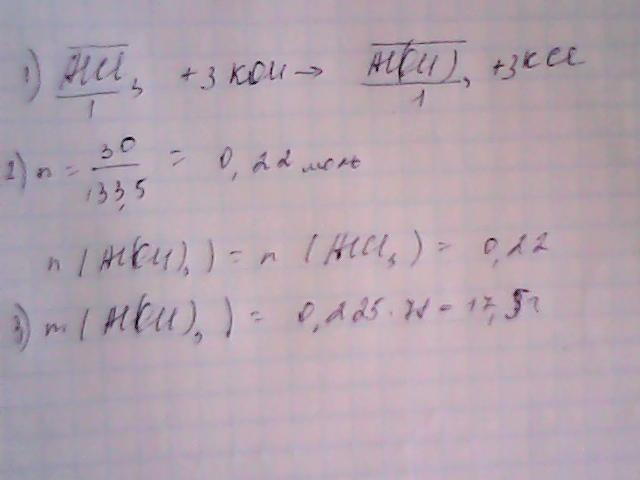 1) AlCl₃ + 3KOH → Al(OH)₃ + 3KCl
1 1
2) n = 30 / 133,5 = 0,22 моль
n (Al(OH)₃) = n (AlCl₃) = 0,22
3) m (Al(OH)₃) = 0,225 · 78 = 17,5г